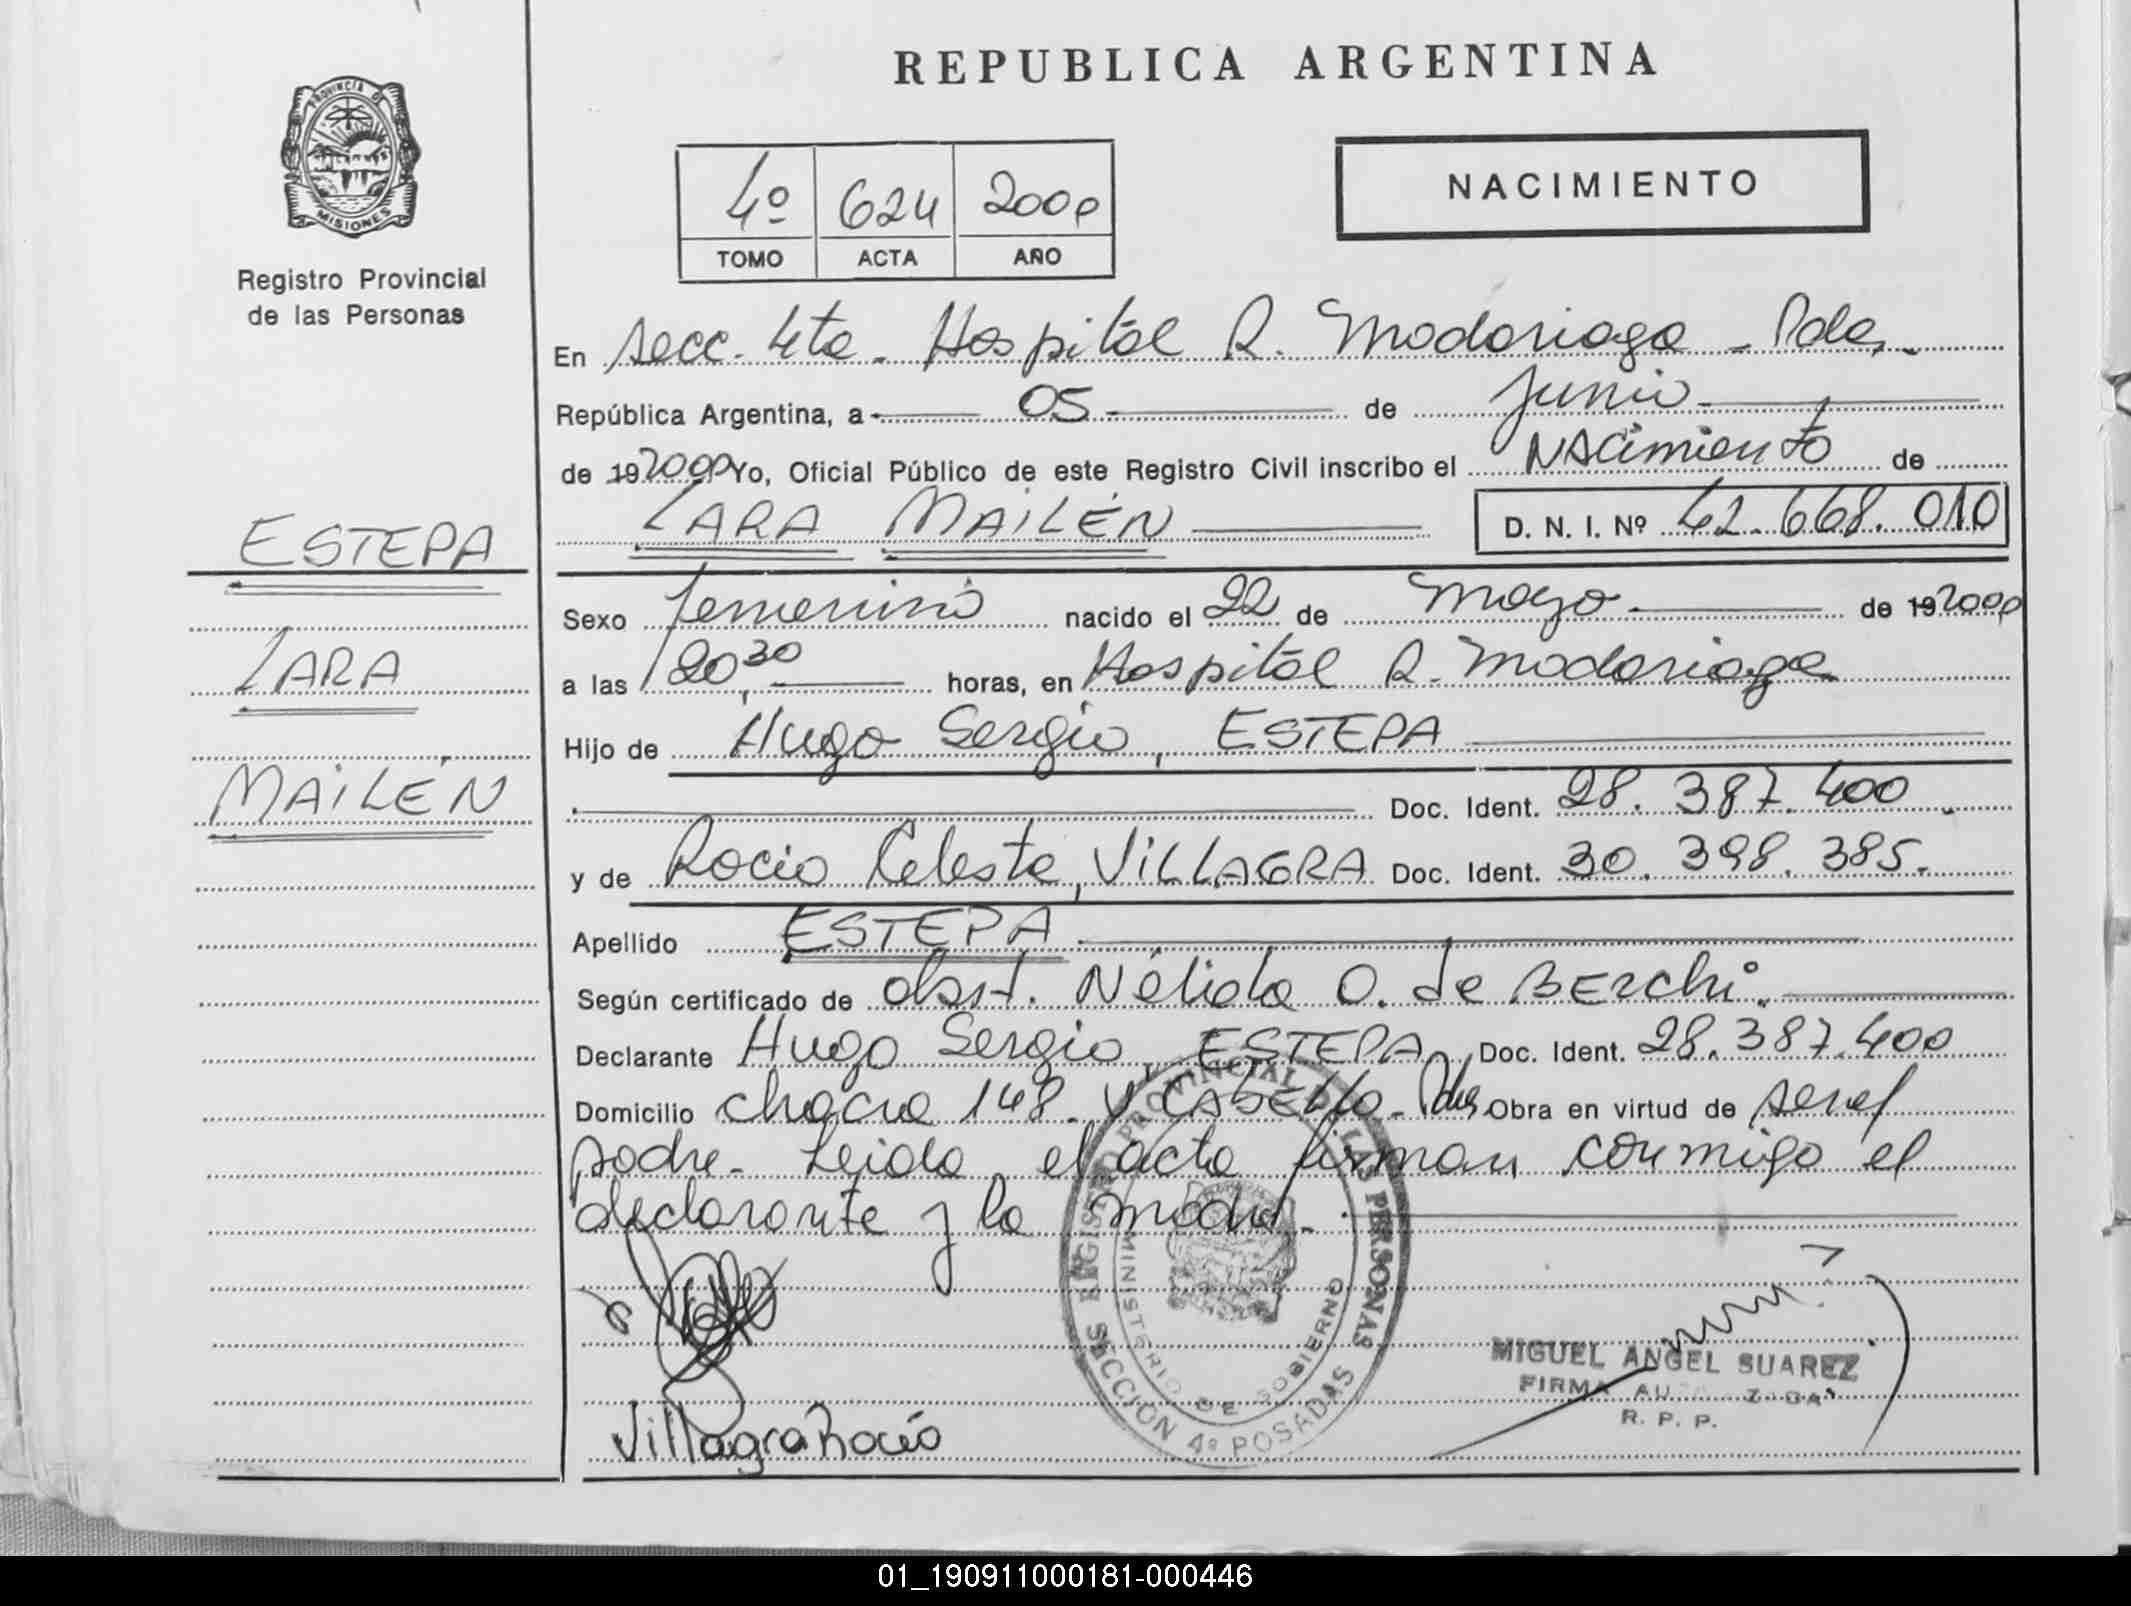 REPUBLICA ARGENTINA
PROVINCIA DE
MISIONES
Registro Provincial
de las Personas
4º 624 2000
TOMO ACTA AÑO
NACIMIENTO
En Secc. 4ta. Hospital R. Madariaga - Pdas.
República Argentina, a 05 de Junio
de 19 2000 Yo, Oficial Público de este Registro Civil inscribo el NAcimiento de
LARA MAILÉN D. N. I. Nº 42.668.010
ESTEPA
LARA
MAILÉN
Sexo femenino nacido el 22 de Mayo de 19 2000
a las 20,30 horas, en Hospital R. Madariaga
Hijo de Hugo Sergio, ESTEPA
Doc. Ident. 28.387.400.
y de Rocio Celeste, ViLLAGRA Doc. Ident. 30.398.385.
Apellido ESTEPA
Según certificado de obst. Nélida O. de BERchi.
Declarante Hugo Sergio, ESTEPA, Doc. Ident. 28.387.400
Domicilio chacra 148. V. CABELLo. Pdas Obra en virtud de ser el
padre. Leida el acta firman conmigo el
declarante y la madre.
REGISTRO PROVINCIAL DE LAS PERSONAS
MINISTERIO DE GOBIERNO
SECCION 4ª POSADAS
MIGUEL ANGEL SUAREZ
FIRMA
R. P. P.
Villagra Rocío
01_190911000181-000446